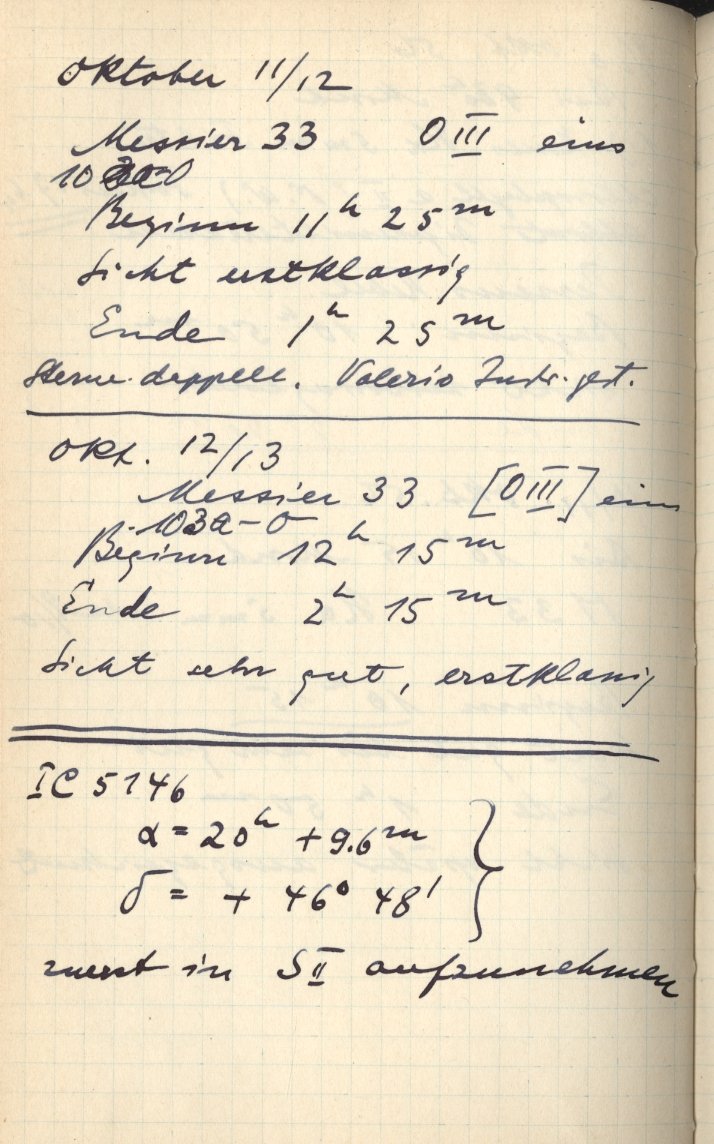 Oktober 11/12
Messier 33 O III eins
103a-O
Beginn 11h 25m
Sicht erstklassig
Ende 1h 25m
Sterne doppelt. Valerio
Okt. 12/13
Messier 33 [O III] eins
103a-O
Beginn 12h 15m
Ende 2h 15m
Sicht sehr gut, erstklassig
IC 5146
α = 20h +9.6m
δ = + 46° 48'
zuerst in S II aufzunehmen